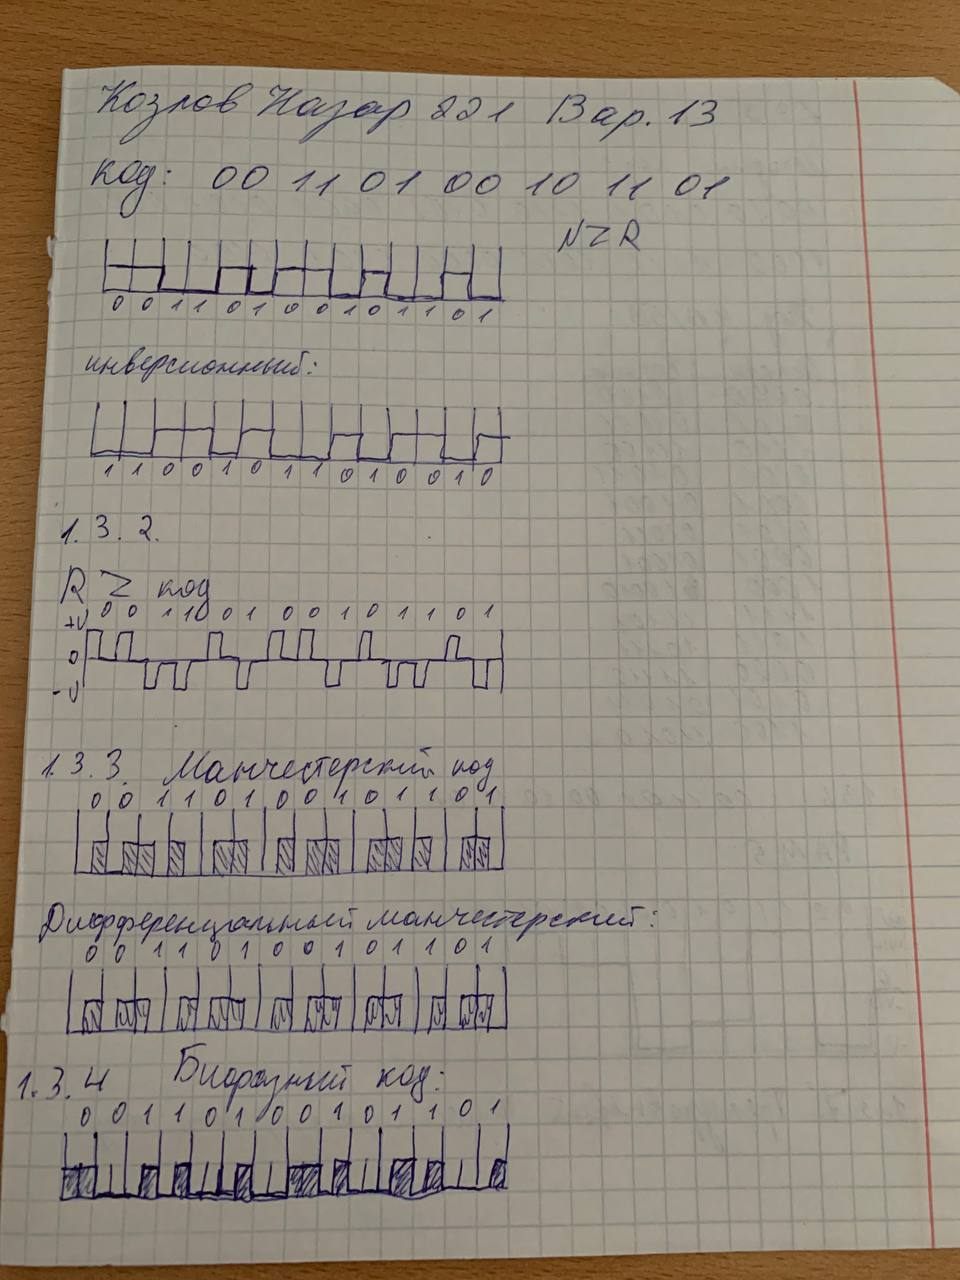 Козлов Назар 221 Вар. 13
код: 00 11 01 00 10 11 01
NZR
0 0 1 1 0 1 0 0 1 0 1 1 0 1
инверсионный:
1 1 0 0 1 0 1 1 0 1 0 0 1 0
1.3.2.
RZ код
0 0 1 1 0 0 1 0 0 1 0 1 1 0 1
+V
0
-V
1.3.3. Манчестерский код
0 0 1 1 0 1 0 0 1 0 1 1 0 1
Дифференциальный манчестерский:
0 0 1 1 0 1 0 0 1 0 1 1 0 1
1.3.4 Бифазный код:
0 0 1 1 0 1 0 0 1 0 1 1 0 1